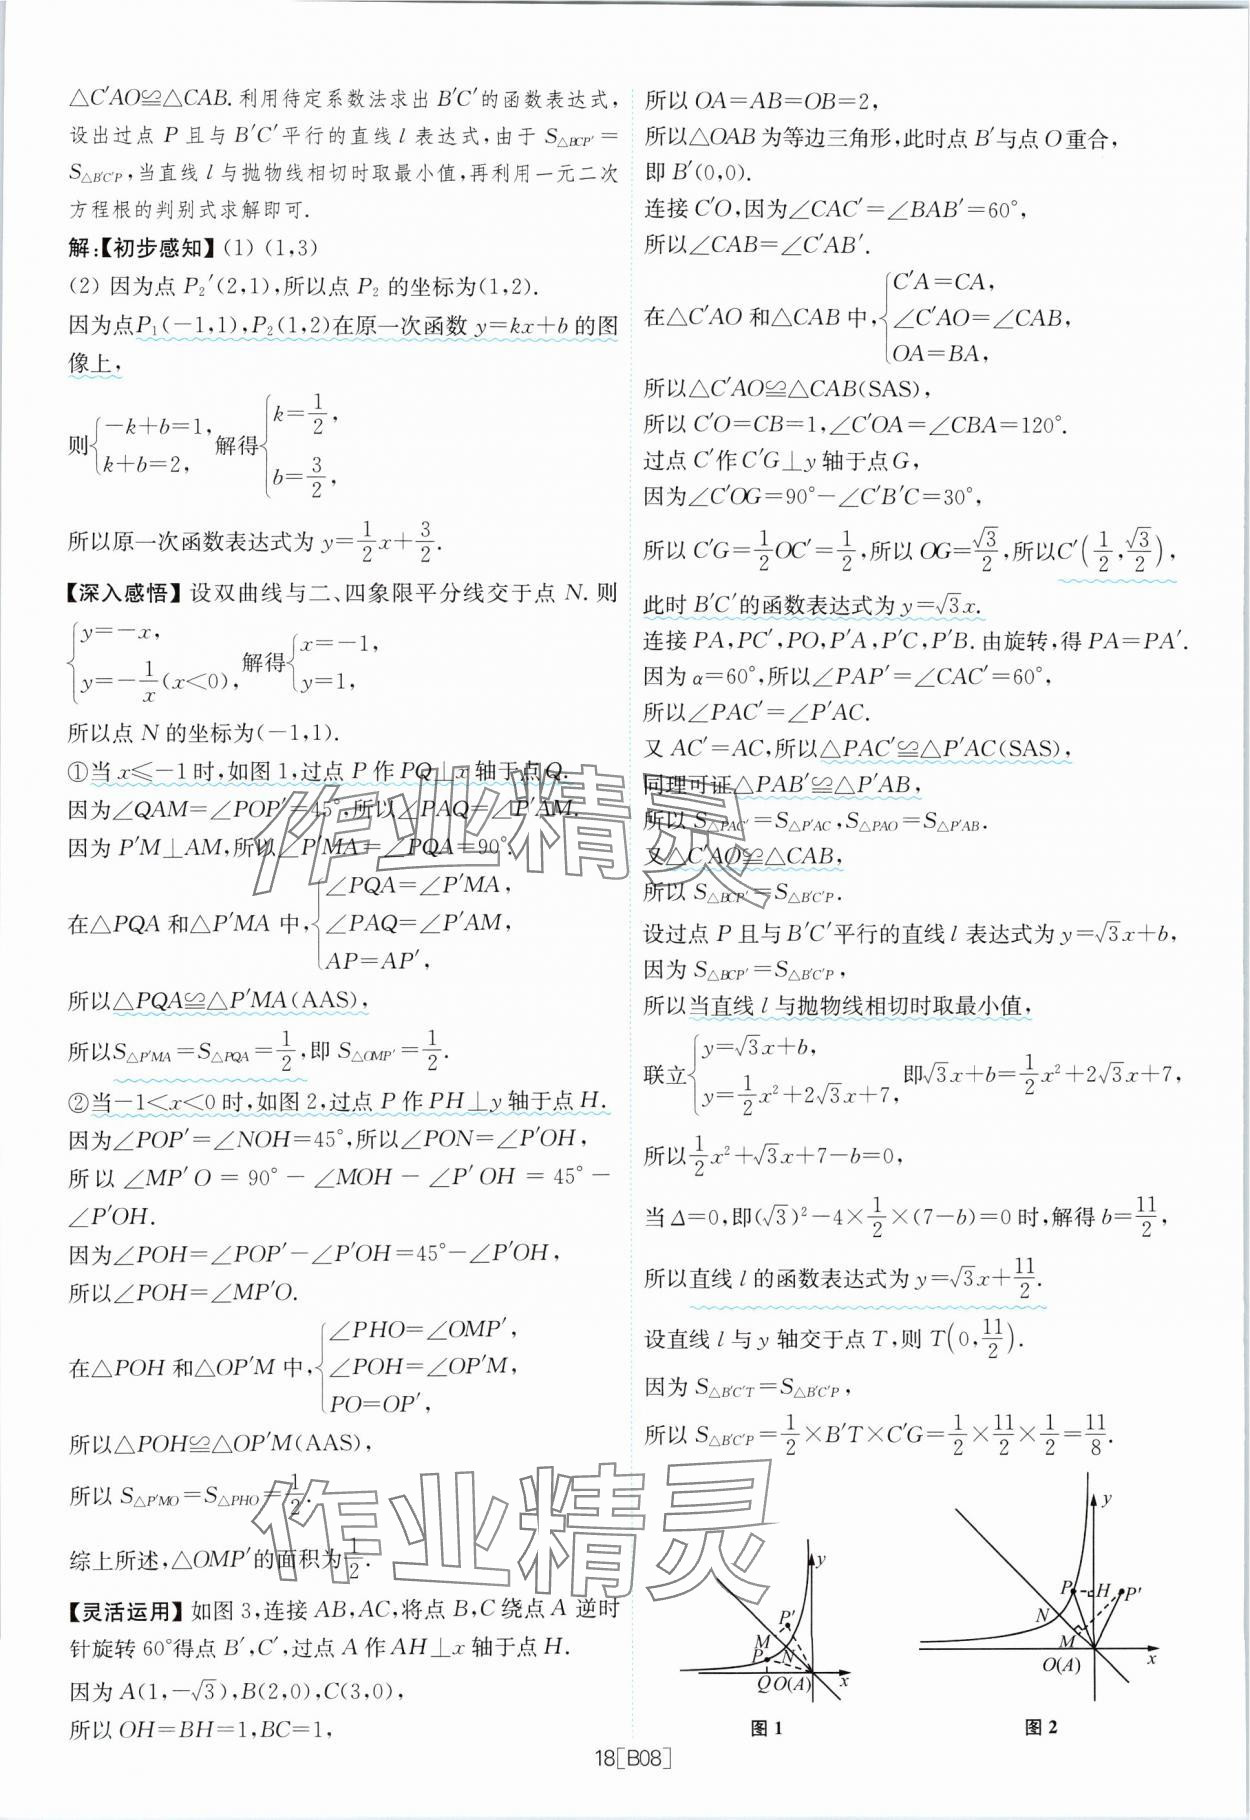 △C′AO≌△CAB.利用待定系数法求出B′C′的函数表达式,
设出过点 P 且与 B′C′平行的直线 l 表达式,由于 S△BCP′=
S△B′C′P,当直线 l 与抛物线相切时取最小值,再利用一元二次
方程根的判别式求解即可.
解:【初步感知】(1) (1,3)
(2) 因为点 P₂′(2,1),所以点 P₂ 的坐标为(1,2).
因为点P₁(-1,1),P₂(1,2)在原一次函数 y=kx+b 的图
像上,
则{-k+b=1, k+b=2, 解得{k=1/2, b=3/2,
所以原一次函数表达式为 y=1/2x+3/2.
【深入感悟】设双曲线与二、四象限平分线交于点 N.则
{y=-x, y=-1/x(x<0), 解得{x=-1, y=1,
所以点 N 的坐标为(-1,1).
①当 x≤-1时,如图 1,过点 P 作 PQ⊥x 轴于点Q.
因为∠QAM=∠POP′=45°,所以∠PAQ=∠P′AM.
因为 P′M⊥AM,所以∠P′MA=∠PQA=90°.
在△PQA 和△P′MA 中,{∠PQA=∠P′MA, ∠PAQ=∠P′AM, AP=AP′,
所以△PQA≌△P′MA(AAS),
所以S△P′MA=S△PQA=1/2,即 S△OMP′=1/2.
②当-1<x<0时,如图 2,过点 P 作 PH⊥y 轴于点 H.
因为∠POP′=∠NOH=45°,所以∠PON=∠P′OH,
所以 ∠MP′O = 90° - ∠MOH - ∠P′OH = 45° -
∠P′OH.
因为∠POH=∠POP′-∠P′OH=45°-∠P′OH,
所以∠POH=∠MP′O.
在△POH 和△OP′M 中,{∠PHO=∠OMP′, ∠POH=∠OP′M, PO=OP′,
所以△POH≌△OP′M(AAS),
所以 S△P′MO=S△PHO=1/2.
综上所述,△OMP′的面积为1/2.
【灵活运用】如图 3,连接 AB,AC,将点 B,C 绕点 A 逆时
针旋转 60°得点 B′,C′,过点 A 作 AH⊥x 轴于点 H.
因为 A(1,-√3),B(2,0),C(3,0),
所以 OH=BH=1,BC=1,
所以 OA=AB=OB=2,
所以△OAB 为等边三角形,此时点 B′与点 O 重合,
即 B′(0,0).
连接 C′O,因为∠CAC′=∠BAB′=60°,
所以∠CAB=∠C′AB′.
在△C′AO 和△CAB 中,{C′A=CA, ∠C′AO=∠CAB, OA=BA,
所以△C′AO≌△CAB(SAS),
所以 C′O=CB=1,∠C′OA=∠CBA=120°.
过点 C′作 C′G⊥y 轴于点 G,
因为∠C′OG=90°-∠C′B′C=30°,
所以 C′G=1/2OC′=1/2,所以 OG=√3/2,所以C′(1/2,√3/2),
此时 B′C′的函数表达式为 y=√3x.
连接 PA,PC′,PO,P′A,P′C,P′B.由旋转,得 PA=PA′.
因为 α=60°,所以∠PAP′=∠CAC′=60°,
所以∠PAC′=∠P′AC.
又 AC′=AC,所以△PAC′≌△P′AC(SAS),
同理可证△PAB′≌△P′AB,
所以 S△PAC′=S△P′AC,S△PAO=S△P′AB.
又△C′AO≌△CAB,
所以 S△BCP′=S△B′C′P.
设过点 P 且与 B′C′平行的直线 l 表达式为 y=√3x+b,
因为 S△BCP′=S△B′C′P,
所以当直线 l 与抛物线相切时取最小值,
联立{y=√3x+b, y=1/2x²+2√3x+7, 即√3x+b=1/2x²+2√3x+7,
所以1/2x²+√3x+7-b=0,
当 Δ=0,即(√3)²-4×1/2×(7-b)=0时,解得 b=11/2,
所以直线 l 的函数表达式为 y=√3x+11/2.
设直线 l 与 y 轴交于点 T,则 T(0,11/2).
因为 S△B′C′T=S△B′C′P,
所以 S△B′C′P=1/2×B′T×C′G=1/2×11/2×1/2=11/8.
y
P′
M
N
P
Q O(A) x
图 1
y
P H P′
N
M
O(A) x
图 2
18[B08]
作业精灵
作业精灵